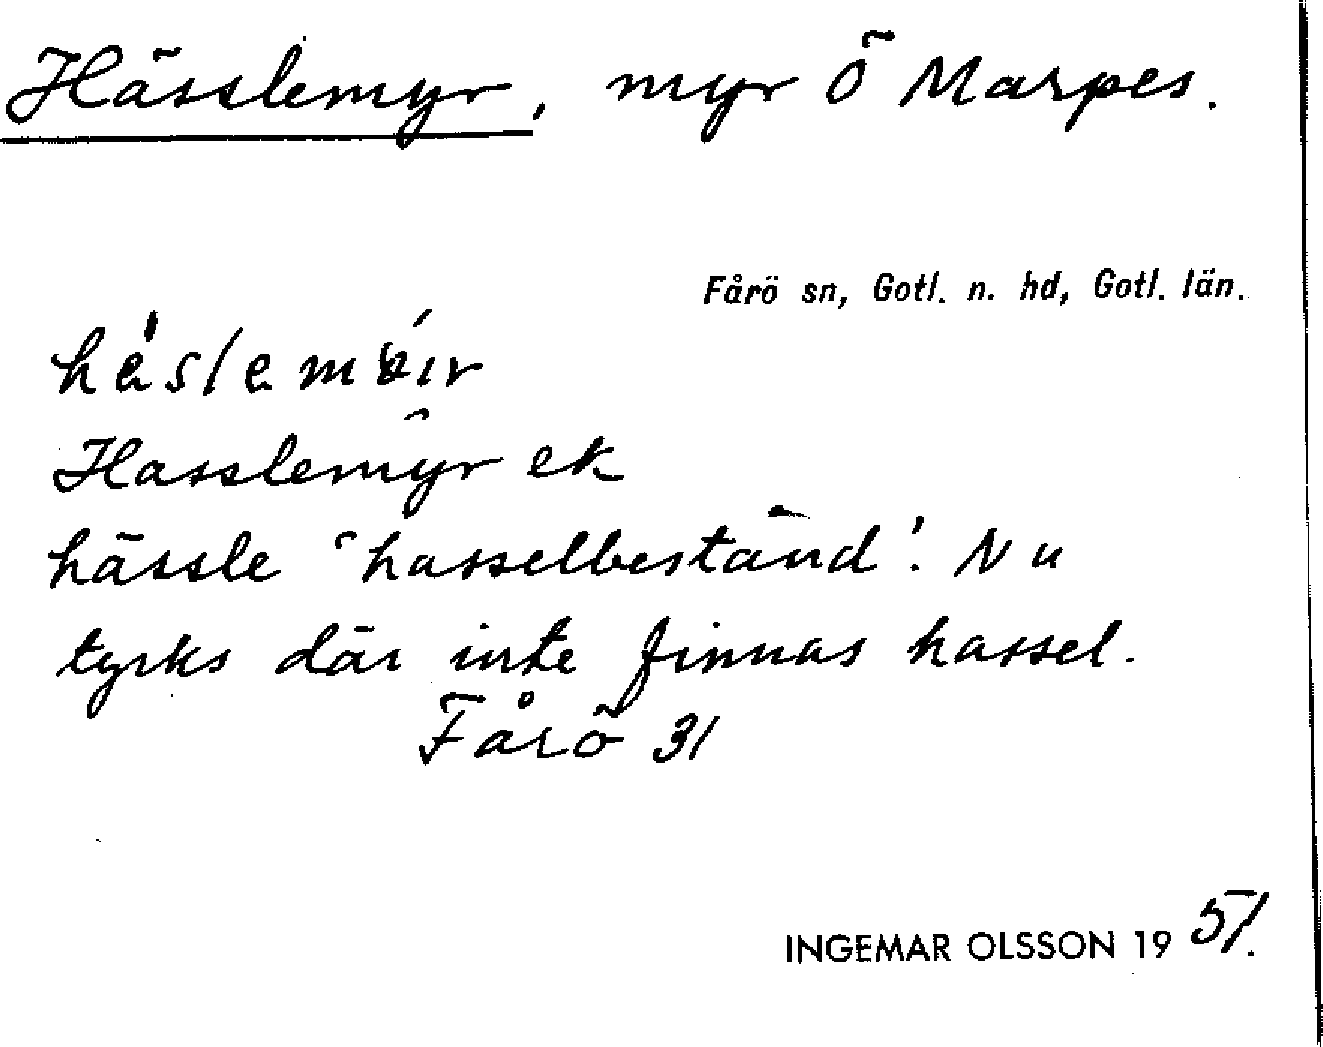 Hässlemyr, myr Ö Marpes.
Fårö sn, Gotl. n. hd, Gotl. län.
Hasslemyr ek
hässle 'hasselbestånd'. Nu
tycks där inte finnas hassel.
Fårö 31
INGEMAR OLSSON 19 51.